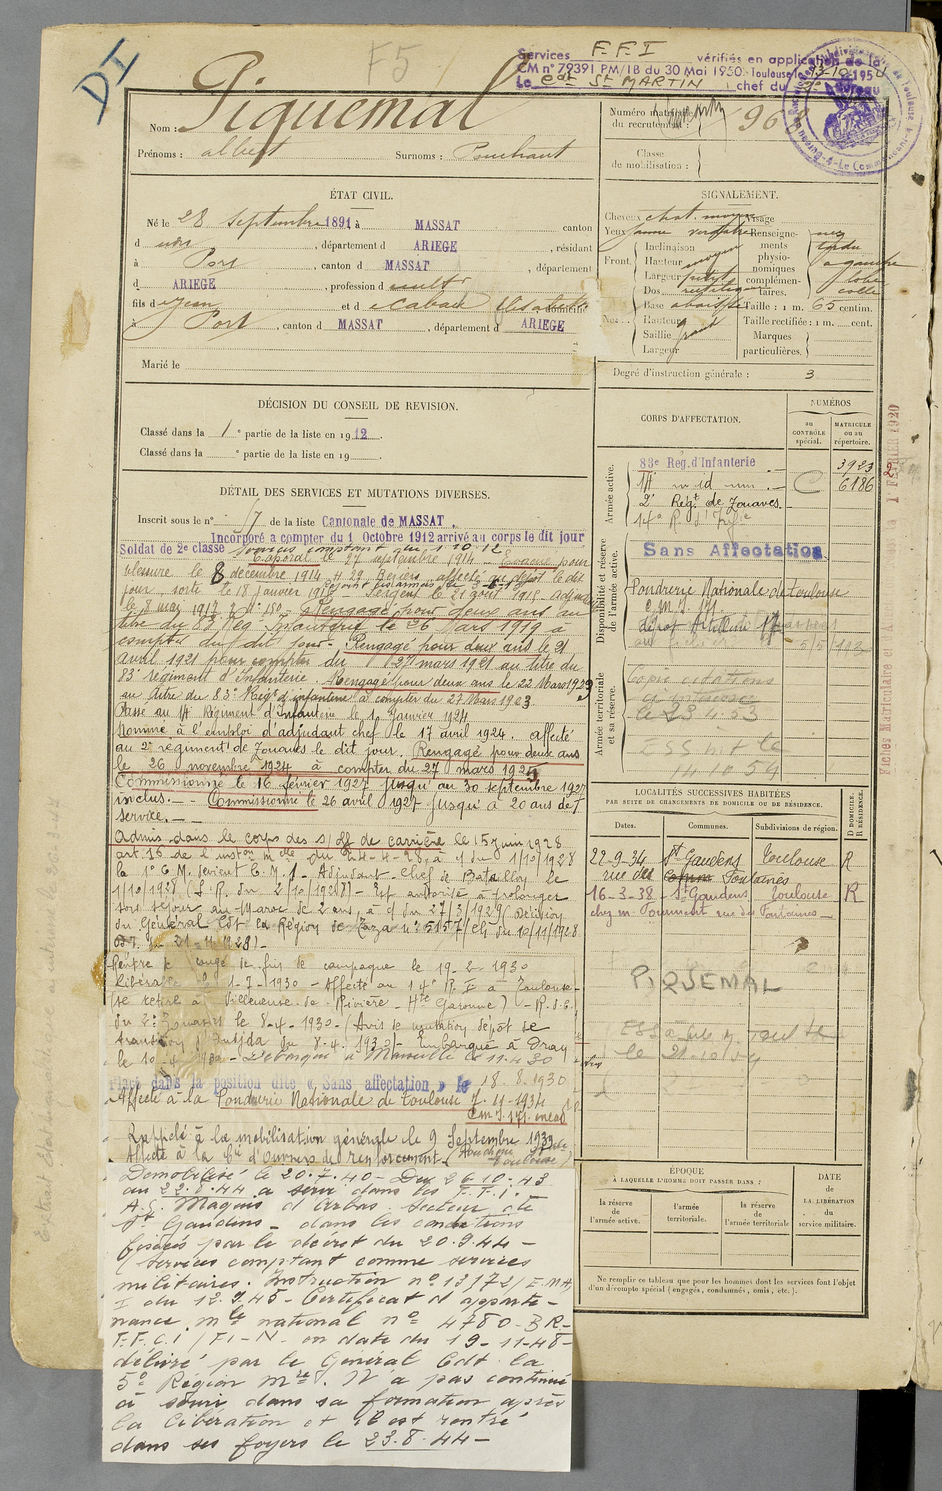 DI
F5
Services F.F.I vérifiés en application de la
CM n° 79391 PM/1B du 30 Mai 1950. Toulouse le
Le Cdt St MARTIN chef du Bureau
Nom : Piquemal
Prénoms : albert Surnoms :
Numéro matricule du recrutement : 968
Classe de mobilisation :
ÉTAT CIVIL.
Né le 28 septembre 1891 à MASSAT canton
d , département d ARIEGE , résidant
à Port , canton d MASSAT , département
d ARIEGE , profession d cult
fils d Jean et d Cabau Elisabeth domicilié
à Port , canton d MASSAT , département d ARIEGE
Marié le
SIGNALEMENT.
Cheveux chat. moyen Visage
Yeux jaune verdâtre
Front. Inclinaison
Hauteur moyen
Largeur petite
Nez. Dos rectiligne
Base abaissée
Hauteur
Saillie grand
Largeur
Renseignements physionomiques complémentaires. nez tordu a gauche lobe collé
Taille : 1 m. 65 centim.
Taille rectifiée : 1 m. cent.
Marques particulières.
Degré d'instruction générale : 3
DÉCISION DU CONSEIL DE REVISION.
Classé dans la 1 e partie de la liste en 1912.
Classé dans la e partie de la liste en 19
DÉTAIL DES SERVICES ET MUTATIONS DIVERSES.
Inscrit sous le n° 7 de la liste Cantonale de MASSAT.
Incorporé a compter du 1 Octobre 1912 arrivé au corps le dit jour
Soldat de 2e classe services comptant du 1.10.12
Caporal le 27 septembre 1914 - Evacué pour
blessure le 8 décembre 1914 affecté au dépôt le dit
jour, sorti le 18 janvier 1915 - Sergent le 21 août 1915 - Adjudant
le 8 mai 1917 - Rengagé pour deux ans au
titre du 83 Rég. Infanterie le 26 Mars 1919 à
compter du dit jour - Rengagé pour deux ans le 21
avril 1921 pour compter du 27 mars 1921 au titre du
83e régiment d'infanterie. Rengagé pour deux ans le 22 Mars 1923
au titre du 83e Régt d'infanterie à compter du 27 Mars 1923.
Passé au 14 Régiment d'Infanterie le 1er Janvier 1924
Nommé à l'emploi d'adjudant chef le 17 avril 1924. affecté
au 2e régiment de Zouaves le dit jour. Rengagé pour deux ans
le 26 novembre 1924 à compter du 27 mars 1925
Commissionné le 16 février 1927 jusqu'au 30 septembre 1927
inclus. - Commissionné le 26 avril 1927 jusqu'à 20 ans de
service. -
Admis dans le corps des s/off de carrière le 15 juin 1928
art. 16 de l'inston mlle du 24-4-28, à c/ du 1/10/1928
la 1e C.M. devient C.M.1 - Adjudant-Chef de Bataillon le
1/10/1928 (L.R. du 2/10/1928) - Est autorisé à prolonger
son séjour au Maroc de 2 ans à c/ du 27/3/1929 (Décision
du Général Cdt la Région de Taza n° 5157/Ch du 10/11/1928
Rentré de congé de fin de campagne le 19-2-1930
libérable le 1-7-1930 - Affecté au 14e R.I à Toulouse -
(se retire à Villeneuve de Rivière - Hte Garonne)
du 2e Zouaves le 8-4-1930 - (Avis de mutation dépôt de
transition d'Oujda du 8-4-1930 - Embarqué à Oran
le 10-4-1930 - Débarqué à Marseille le 11.4.30
Placé dans la position dite « Sans affectation » le 18.8.1930
Affecté à la Poudrerie Nationale de Toulouse 7-11-1934
Rappelé à la mobilisation générale le 9 Septembre 1939
Affecté à la Cie d'Ouvriers de renforcement (Poudrerie Nale Toulouse)
Démobilisé le 20.7.40 - Du 26.10.43
au 22.8.44 a servi dans les F.F.I.
A.S. Maquis d'Arbas. Secteur de
St Gaudens - dans les conditions
fixées par le décret du 20.9.44 -
(services comptant comme services
militaires. Instruction n° 13172/E.M.A
I du 12.9.45 - Certificat d'apparte-
nance mle national n° 4780-BR-
F.F.C.I/F1-N- en date du 19-11-48-
délivré par le Général Cdt la
5e Région Mre. N'a pas continué
à servir dans sa formation après
la libération et il est rentré
dans ses foyers le 23.8.44 -
CORPS D'AFFECTATION.
NUMÉROS
au CONTRÔLE spécial.
MATRICULE ou au répertoire.
Armée active.
83e Rég. d'Infanterie 3923
14e id C 6186
2e Régt de Zouaves
14e R. d'Inf
Disponibilité et réserve de l'armée active.
Sans Affectation
Poudrerie Nationale de Toulouse
dépôt Artillerie
Armée territoriale et sa réserve.
Copie citations
le 23.4.53
14.10.54
LOCALITÉS SUCCESSIVES HABITÉES
PAR SUITE DE CHANGEMENTS DE DOMICILE OU DE RÉSIDENCE.
Dates. Communes. Subdivisions de région. D DOMICILE. R RÉSIDENCE.
22-9-34 St Gaudens Toulouse R
rue des Fontaines
16-3-38 - St Gaudens Toulouse R
chez M. rue des Fontaines -
PIQUEMAL
le 21.10.54
ÉPOQUE
À LAQUELLE L'HOMME DOIT PASSER DANS :
la réserve de l'armée active.
l'armée territoriale.
la réserve de l'armée territoriale
DATE de LA LIBÉRATION du service militaire.
Ne remplir ce tableau que pour les hommes dont les services font l'objet
d'un décompte spécial (engagés, condamnés, omis, etc.).
1 FÉVRIER 1920
Fiches Matriculaire et